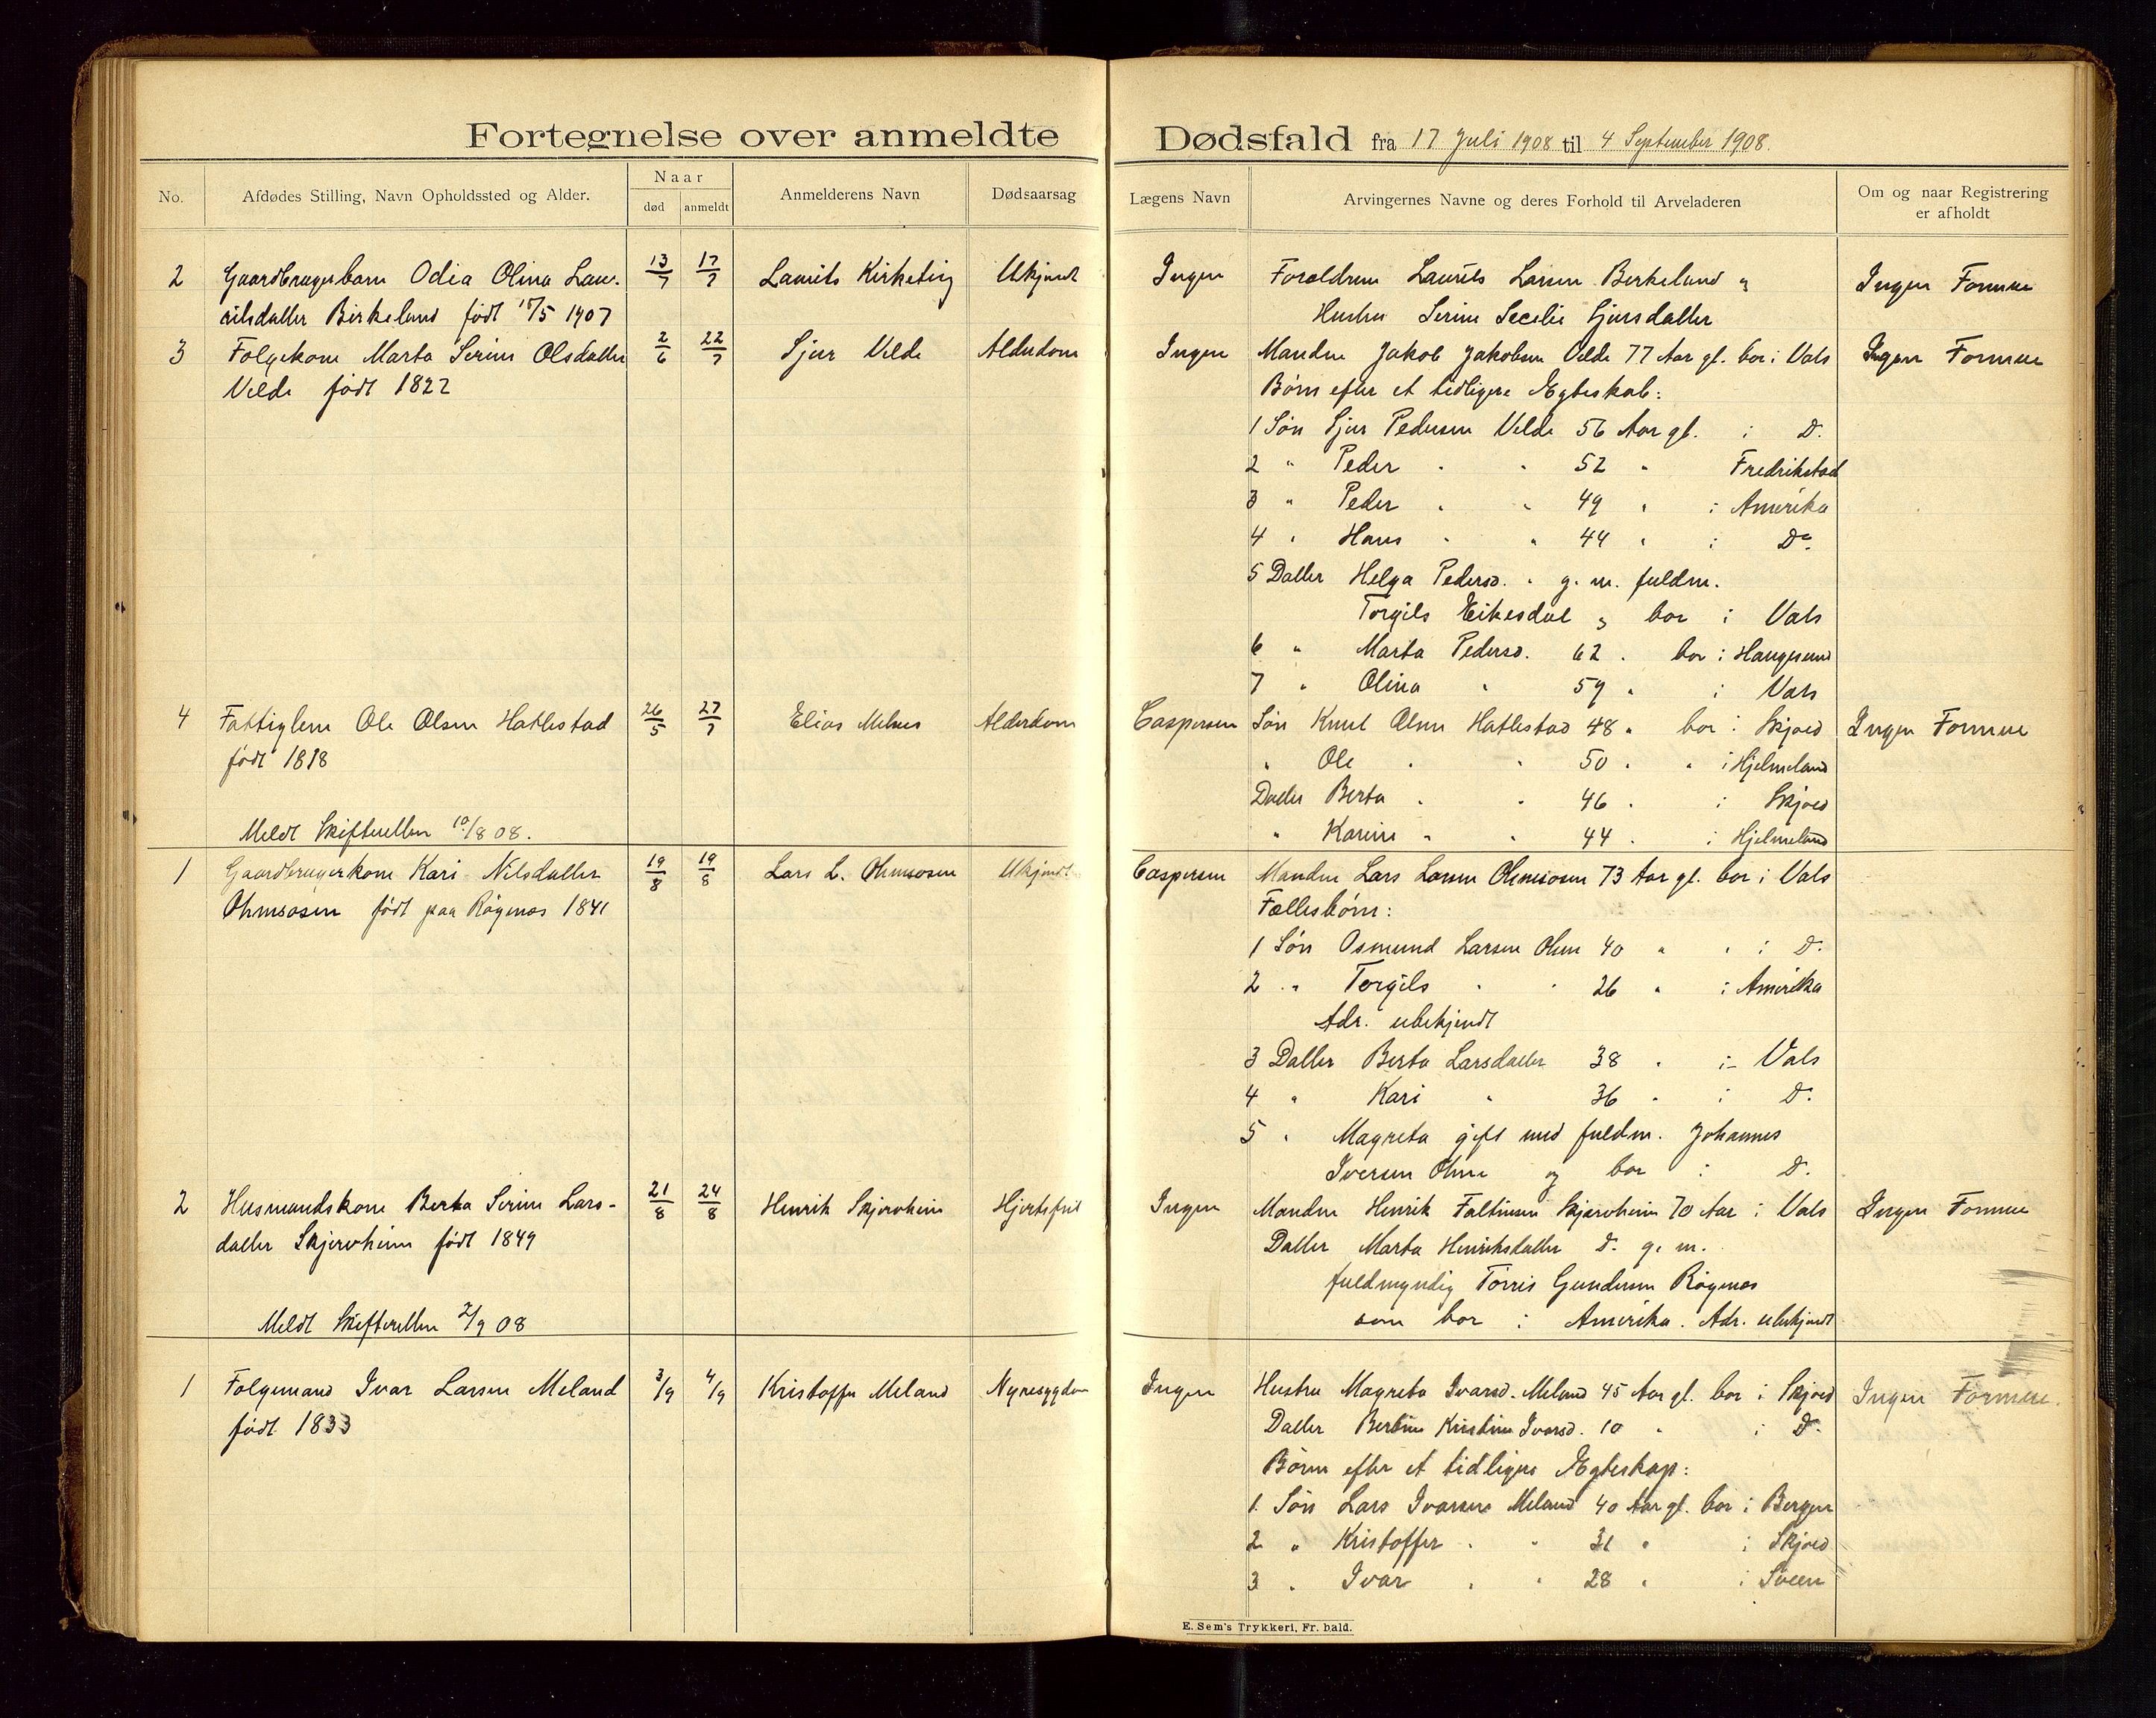 Fortegnelse over anmeldte Dødsfald fra 17 Juli 1908 til 4 September 1908.
No. Afdødes Stilling, Navn Opholdssted og Alder. Naar død anmeldt Anmelderens Navn Dødsaarsag Lægens Navn Arvingernes Navne og deres Forhold til Arveladeren Om og naar Registrering er afholdt
2 Gaardbrugerbarn Odia Olina Lau- 13/7 17/7 Laurits Kirketeig Ukjendt Ingen Forældrene Laurits Larsen Birkeland og Ingen Formue
ritsdatter Birkeland født 15/5 1907 Hustru Serine Secelie Sjursdatter
3 Følgekone Marta Serine Olsdatter 2/6 22/7 Sjur Velde Alderdom Ingen Manden Jakob Jakobsen Velde 77 Aar gl. bor i Vats Ingen Formue
Velde født 1822 Børn efter et tidligere Ægteskab:
1 Søn Sjur Pedersen Velde 56 Aar gl. i Do.
2 " Peder " " 52 " Fredrikstad
3 " Peder " " 49 " i Amerika
4 " Hans " " 44 " i Do.
5 Datter Helga Pedersd. " g. m. fuldm.
Torgils Eikesdal og bor i Vats
6 " Marta Pedersd. 62 " bor i Haugesund
7 " Olina " 59 " i Vats
4 Fattiglem Ole Olsen Hatlestad 26/5 27/7 Elias Melnes Alderdom Caspersen Søn Knut Olsen Hatlestad 48 " bor i Skjold Ingen Formue
født 1818 " Ole " " 50 " " i Hjelmeland
Datter Berta " " 46 " i Skjold
Meldt Skifteretten 10/8 08. " Karine " " 44 " i Hjelmeland
1 Gaardbrugerkone Kari Nilsdatter 19/8 19/8 Lars L. Ohmsosen Ukjendt Caspersen Manden Lars Larsen Ohmsosen 73 Aar gl. bor i Vats
Ohmsosen født paa Røgenes 1841 Fællesbørn:
1 Søn Osmund Larsen Ohm 40 " " i Do.
2 " Torgils " " 26 " i Amerika
Adr. ubekjendt
3 Datter Berta Larsdatter 38 " i Vats
4 " Kari " 36 " i Do.
5 " Magreta gift med fuldm. Johannes
Iversen Ohme og bor i Do.
2 Husmandskone Berta Serine Lars- 21/8 24/8 Henrik Skjervheim Hjertefeil Ingen Manden Henrik Faltinsen Skjervheim 70 Aar i Vats Ingen Formue
datter Skjervheim født 1849 Datter Marta Henriksdatter Do. g. m.
fuldmyndig Tørris Gundersen Røgenes
Meldt Skifteretten 2/9 08 som bor i Amerika. Adr. ubekjendt
1 Følgemand Ivar Larsen Meland 3/9 4/9 Kristoffer Meland Nyresygdom Ingen Hustru Magreta Ivarsd. Meland 45 Aar gl. bor i Skjold Ingen Formue.
født 1833 Datter Bertine Kristine Ivarsd. 10 " i Do.
Børn efter et tidligere Ægteskap:
1. Søn Lars Ivarsen Meland 40 Aar gl. bor i Bergen
2 " Kristoffer " " 31 " i Skjold
3 " Ivar " " 28 " i Sveen
E. Sem's Trykkeri, Fr. hald.